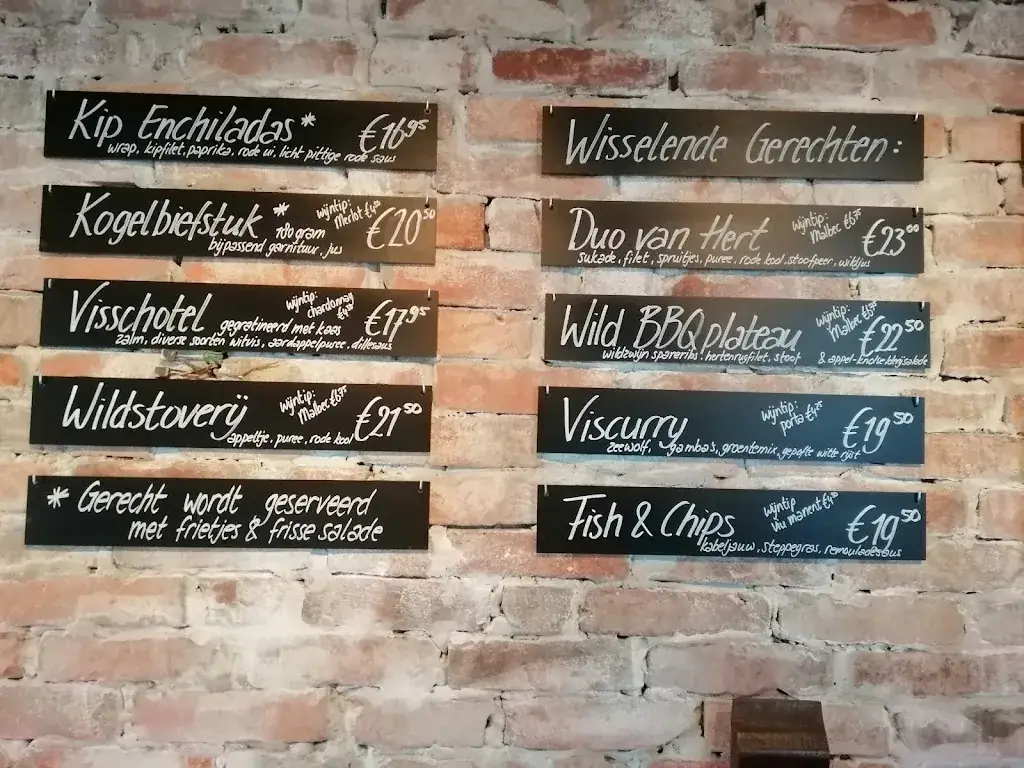 Kip Enchiladas* €16,95
wrap, kipfilet, paprika, rode ui, licht pittige rode saus
Kogelbiefstuk * 180 gram wijntip: Merlot €20,50
bijpassend garnituur, jus
Visschotel gegratineerd met kaas wijntip: chardonnay €17,95
zalm, diverse soorten witvis, aardappelpuree, dillesaus
Wildstoverij wijntip: Malbec €6,75 €21,50
appeltje, puree, rode kool
* Gerecht wordt geserveerd
met frietjes & frisse salade
Wisselende Gerechten:
Duo van Hert wijntip: Malbec €6,75 €23,00
sukade, filet, spruitjes, puree, rode kool, stoofpeer, wildjus
Wild BBQ plateau wijntip: Malbec €6,75 €22,50
wildzwijn spareribs, hertenrugfilet, stoof & appel-knolselderijsalade
Viscurry wijntip: porta €4,75 €19,50
zeewolf, gamba's, groentemix, gepofte witte rijst
Fish & Chips wijntip viu manent €19,50
kabeljauw, steppegras, remouladesaus